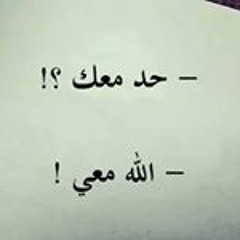 – حد معك ؟!
– الله معي !